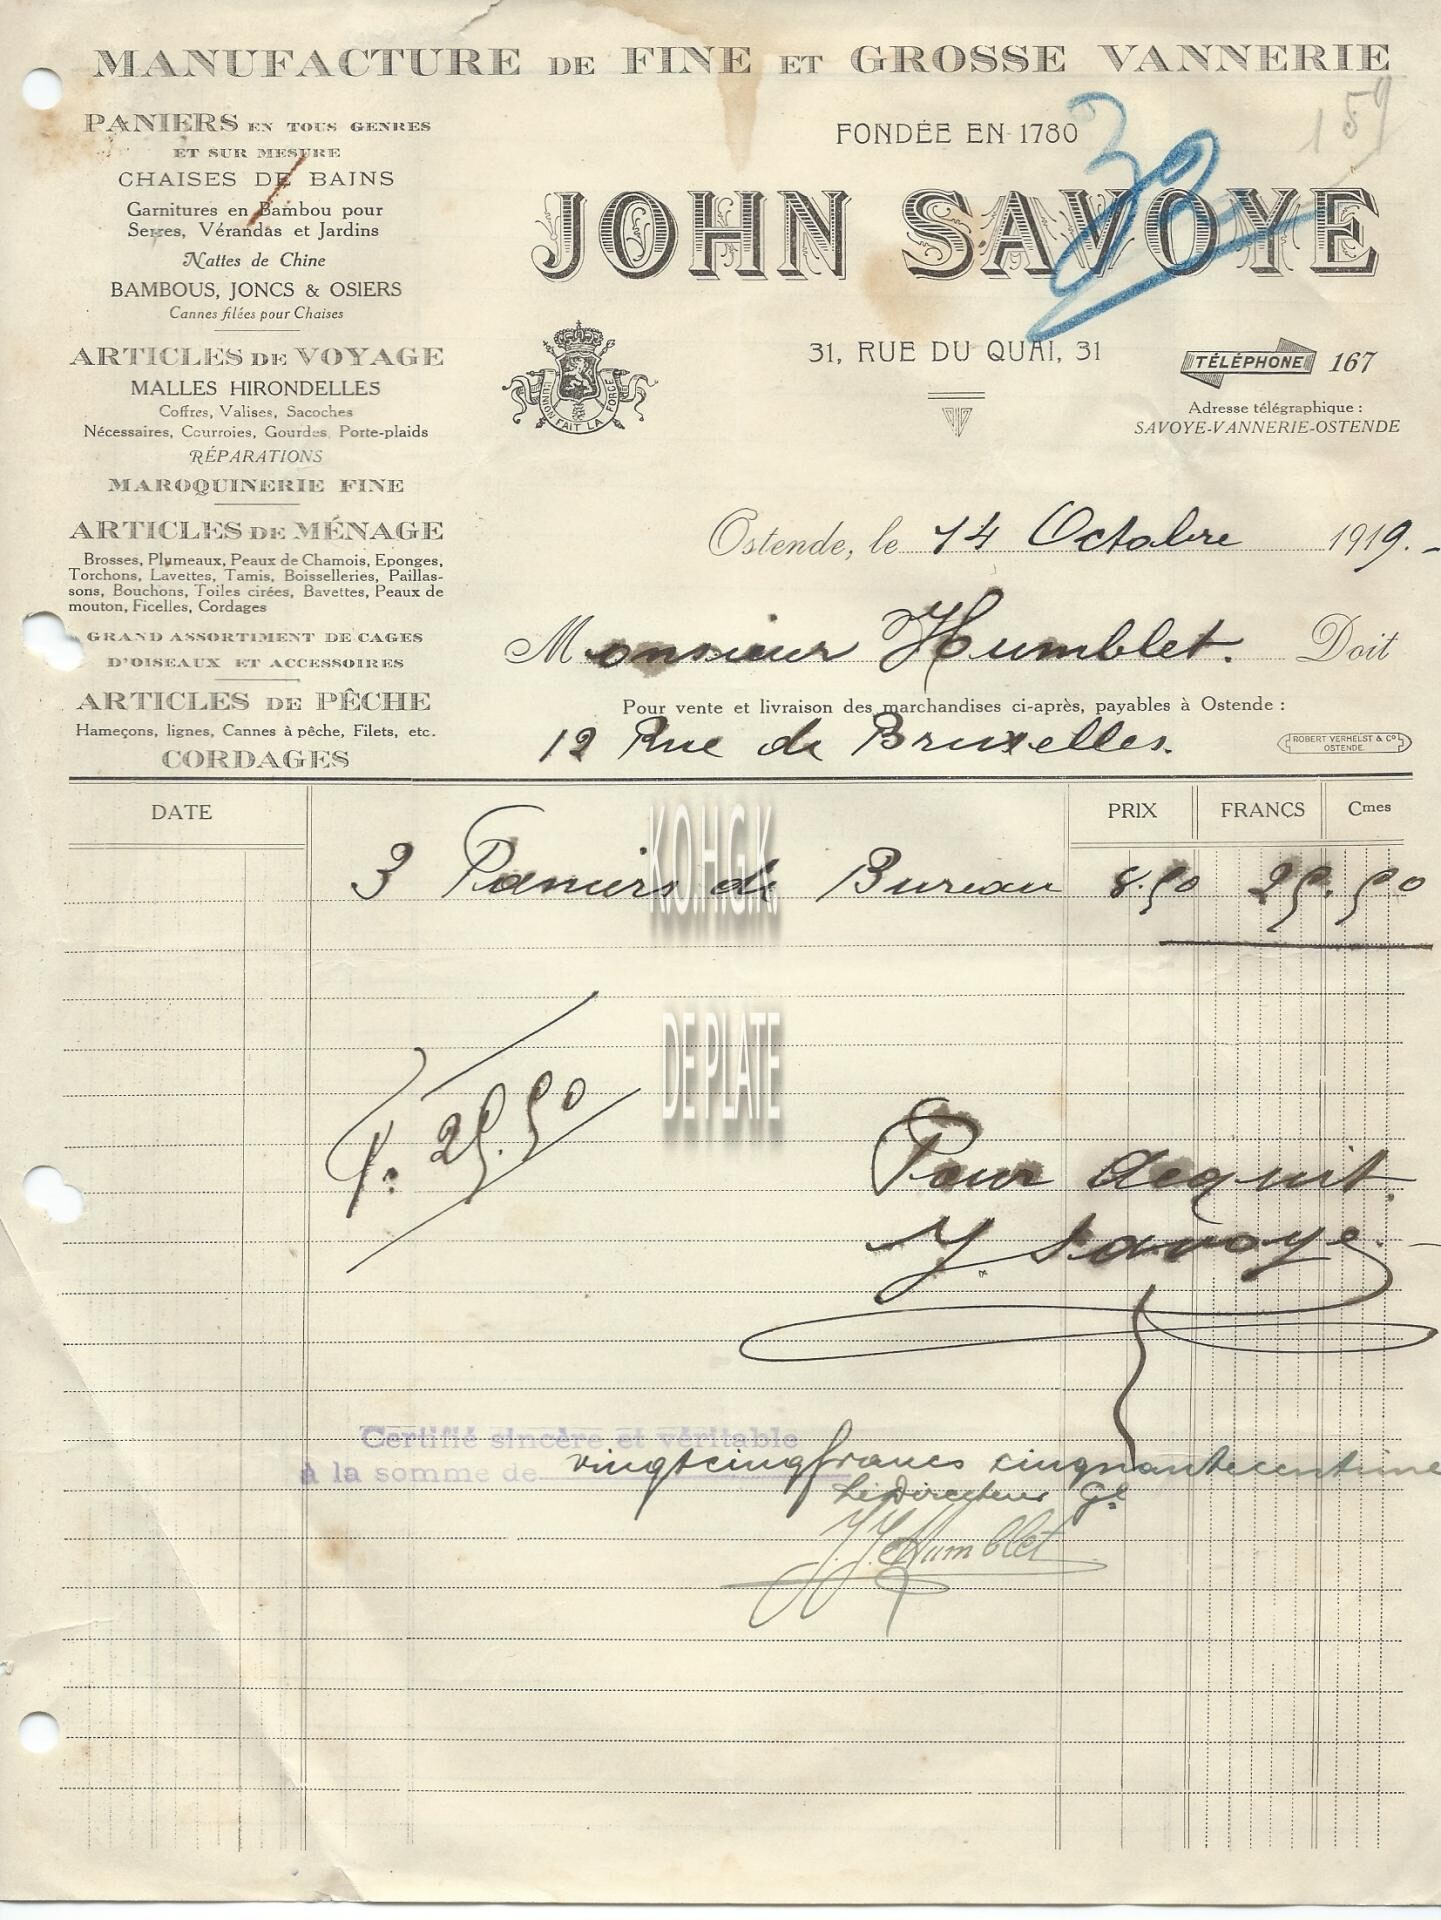 MANUFACTURE DE FINE ET GROSSE VANNERIE
PANIERS EN TOUS GENRES
ET SUR MESURE
CHAISES DE BAINS
Garnitures en Bambou pour
Serres, Vérandas et Jardins
Nattes de Chine
BAMBOUS, JONCS & OSIERS
Cannes filées pour Chaises
ARTICLES DE VOYAGE
MALLES HIRONDELLES
Coffres, Valises, Sacoches
Nécessaires, Courroies, Gourdes, Porte-plaids
RÉPARATIONS
MAROQUINERIE FINE
ARTICLES DE MÉNAGE
Brosses, Plumeaux, Peaux de Chamois, Eponges,
Torchons, Lavettes, Tamis, Boisselleries, Paillas-
sons, Bouchons, Toiles cirées, Bavettes, Peaux de
mouton, Ficelles, Cordages
GRAND ASSORTIMENT DE CAGES
D'OISEAUX ET ACCESSOIRES
ARTICLES DE PÊCHE
Hameçons, lignes, Cannes à pêche, Filets, etc.
CORDAGES
159
FONDÉE EN 1780
JOHN SAVOYE
31, RUE DU QUAI, 31
L'UNION FAIT LA FORCE
TÉLÉPHONE 167
Adresse télégraphique :
SAVOYE-VANNERIE-OSTENDE
Ostende, le 14 Octobre 1919.-
Monsieur Humblet. Doit
Pour vente et livraison des marchandises ci-après, payables à Ostende :
12 Rue de Bruxelles.
ROBERT VERHELST & Co
OSTENDE
DATE PRIX FRANCS Cmes
3 Paniers de Bureau 8.50 25.50
K.O.H.G.K.
DE PLATE
F. 25.50
Pour acquit.
J Savoye.
Certifié sincère et véritable
à la somme de vingtcinqfrancs cinquantecentime
Le Directeur Gl
J. J. Humblet